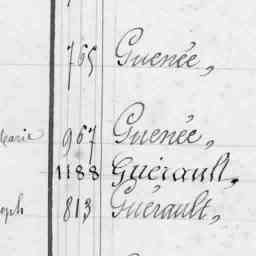 765 Guenée,
Marie 967 Guenée,
1188 Guérault,
oph 813 Guérault,